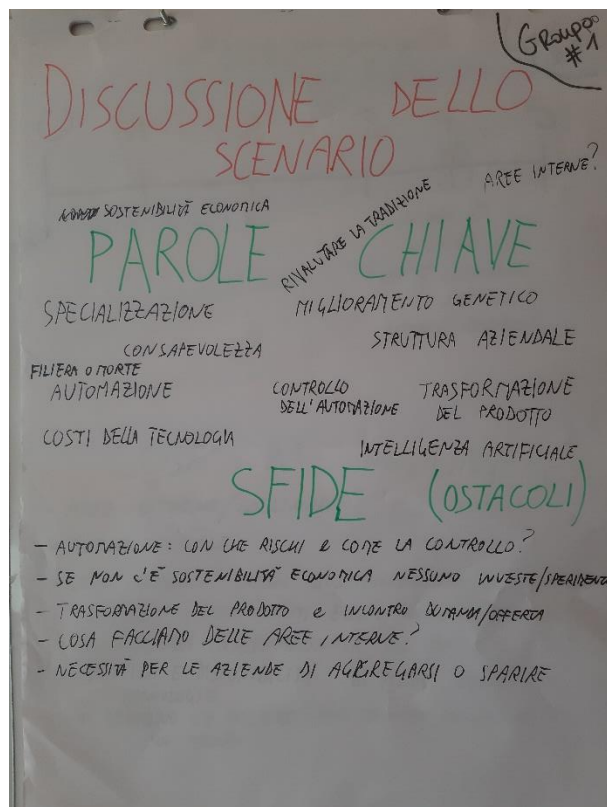 GROUPOO
#1
DISCUSSIONE DELLO
SCENARIO
AREE INTERNE?
SOSTENIBILITÀ ECONOMICA
RIVALUTARE LA TRADIZIONE
PAROLE CHIAVE
SPECIALIZZAZIONE
MIGLIORAMENTO GENETICO
CONSAPEVOLEZZA
STRUTTURA AZIENDALE
FILIERA O MORTE
AUTOMAZIONE
CONTROLLO
DELL'AUTOMAZIONE
TRASFORMAZIONE
DEL PRODOTTO
COSTI DELLA TECNOLOGIA
INTELLIGENZA ARTIFICIALE
SFIDE (OSTACOLI)
- AUTOMAZIONE: CON CHE RISCHI e COME LA CONTROLLO?
- SE NON C'È SOSTENIBILITÀ ECONOMICA NESSUNO INVESTE/
- TRASFORMAZIONE DEL PRODOTTO e INCONTRO DOMANDA/OFFERTA
- COSA FACCIAMO DELLE AREE INTERNE?
- NECESSITÀ PER LE AZIENDE DI AGGREGARSI O SPARIRE